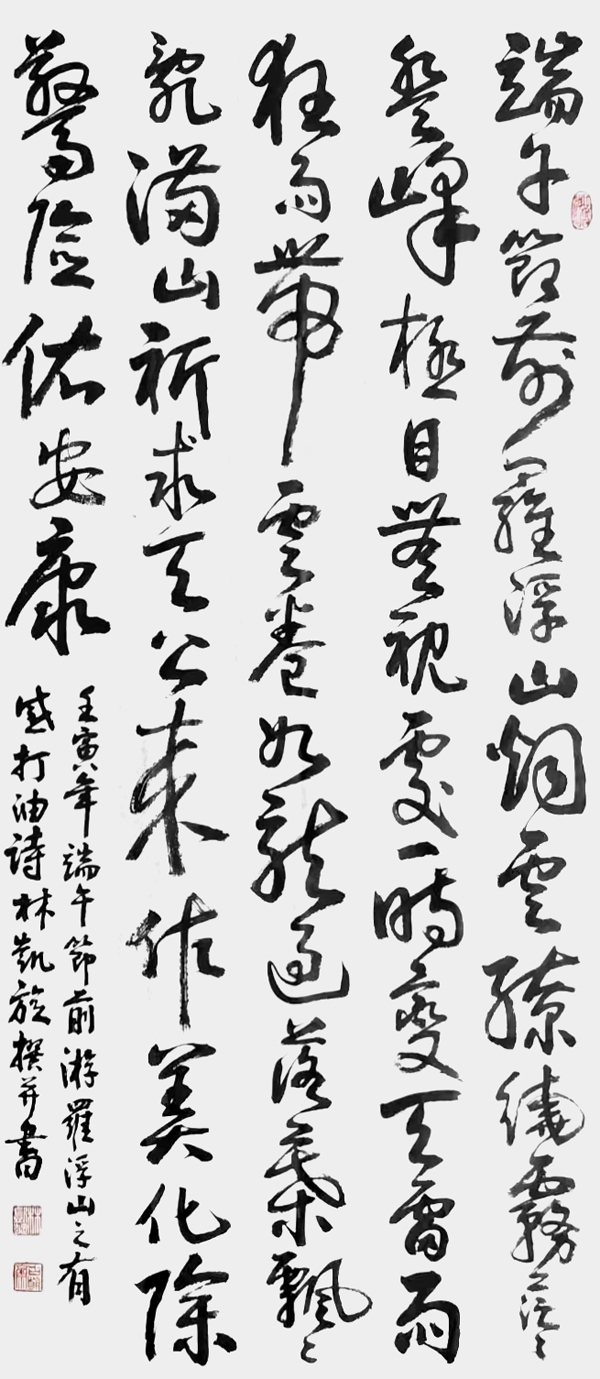 端午節前羅浮山烟雲繚繞霧茫〻
登峰極目無視處一時變天雷雨
狂雨帶雲卷如龍過落葉飄〻
亂滿山祈求天公来作美化除
驚險佑安康
壬寅年端午節前游羅浮山之有
感打油詩林凱旋撰并書